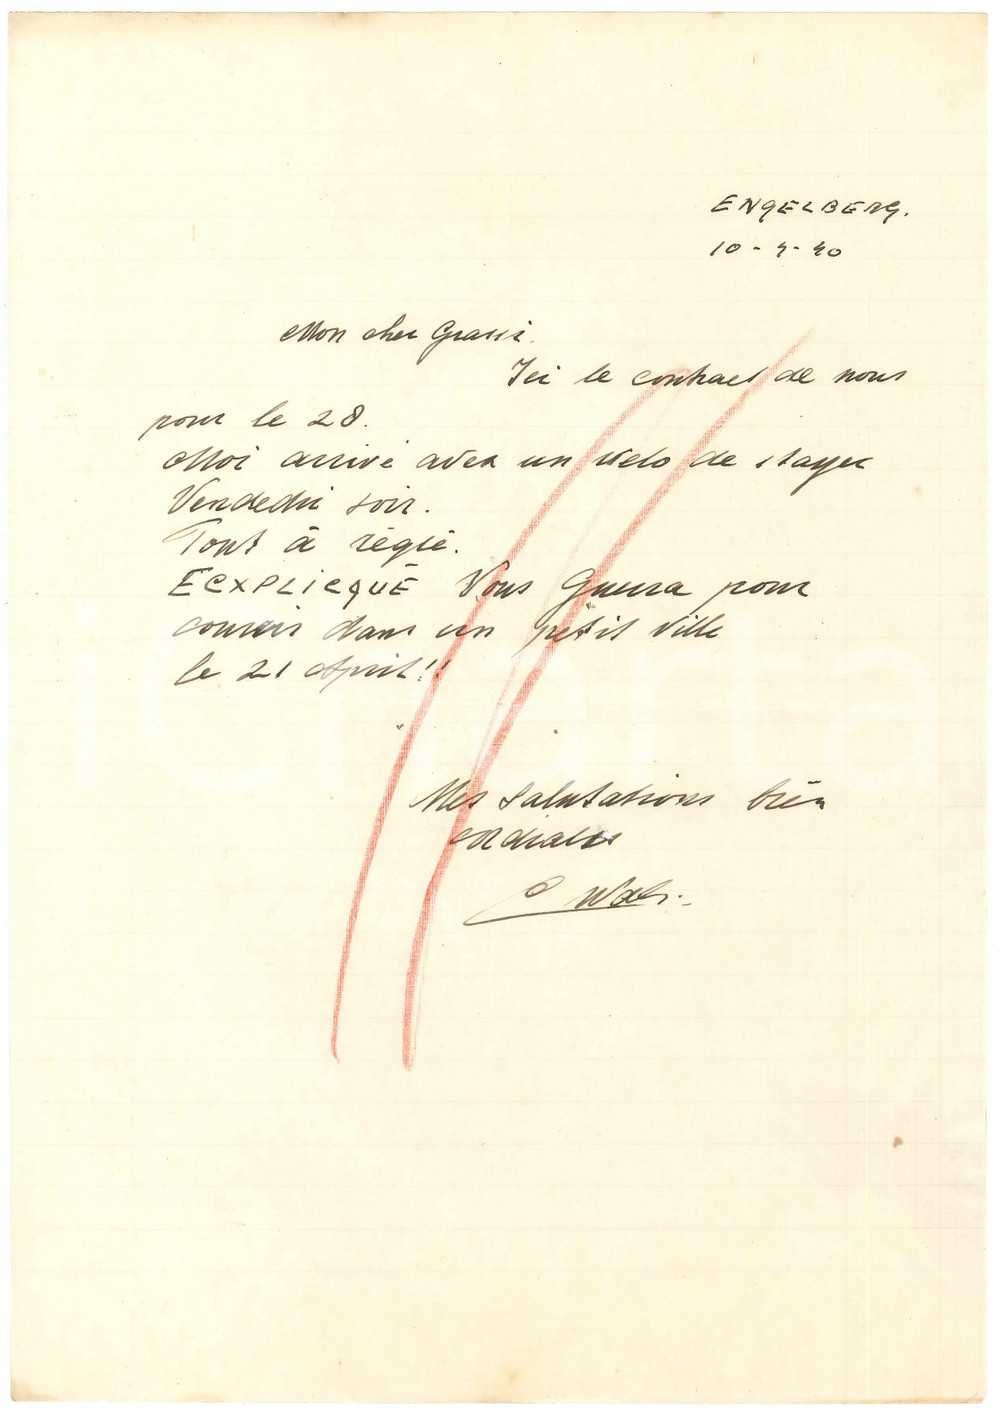 ENGELBERG.
10-4-40
Mon cher Grassi.
Ici le contract de nous
pour le 28.
Moi arrivé avec un velo de stayer
Vendedri soir.
Tout à réglé.
ECXPLICQUÉ Vous Guerra pour
courir dans un petit ville
le 21 April!!
Mes salutations bien
cordiales